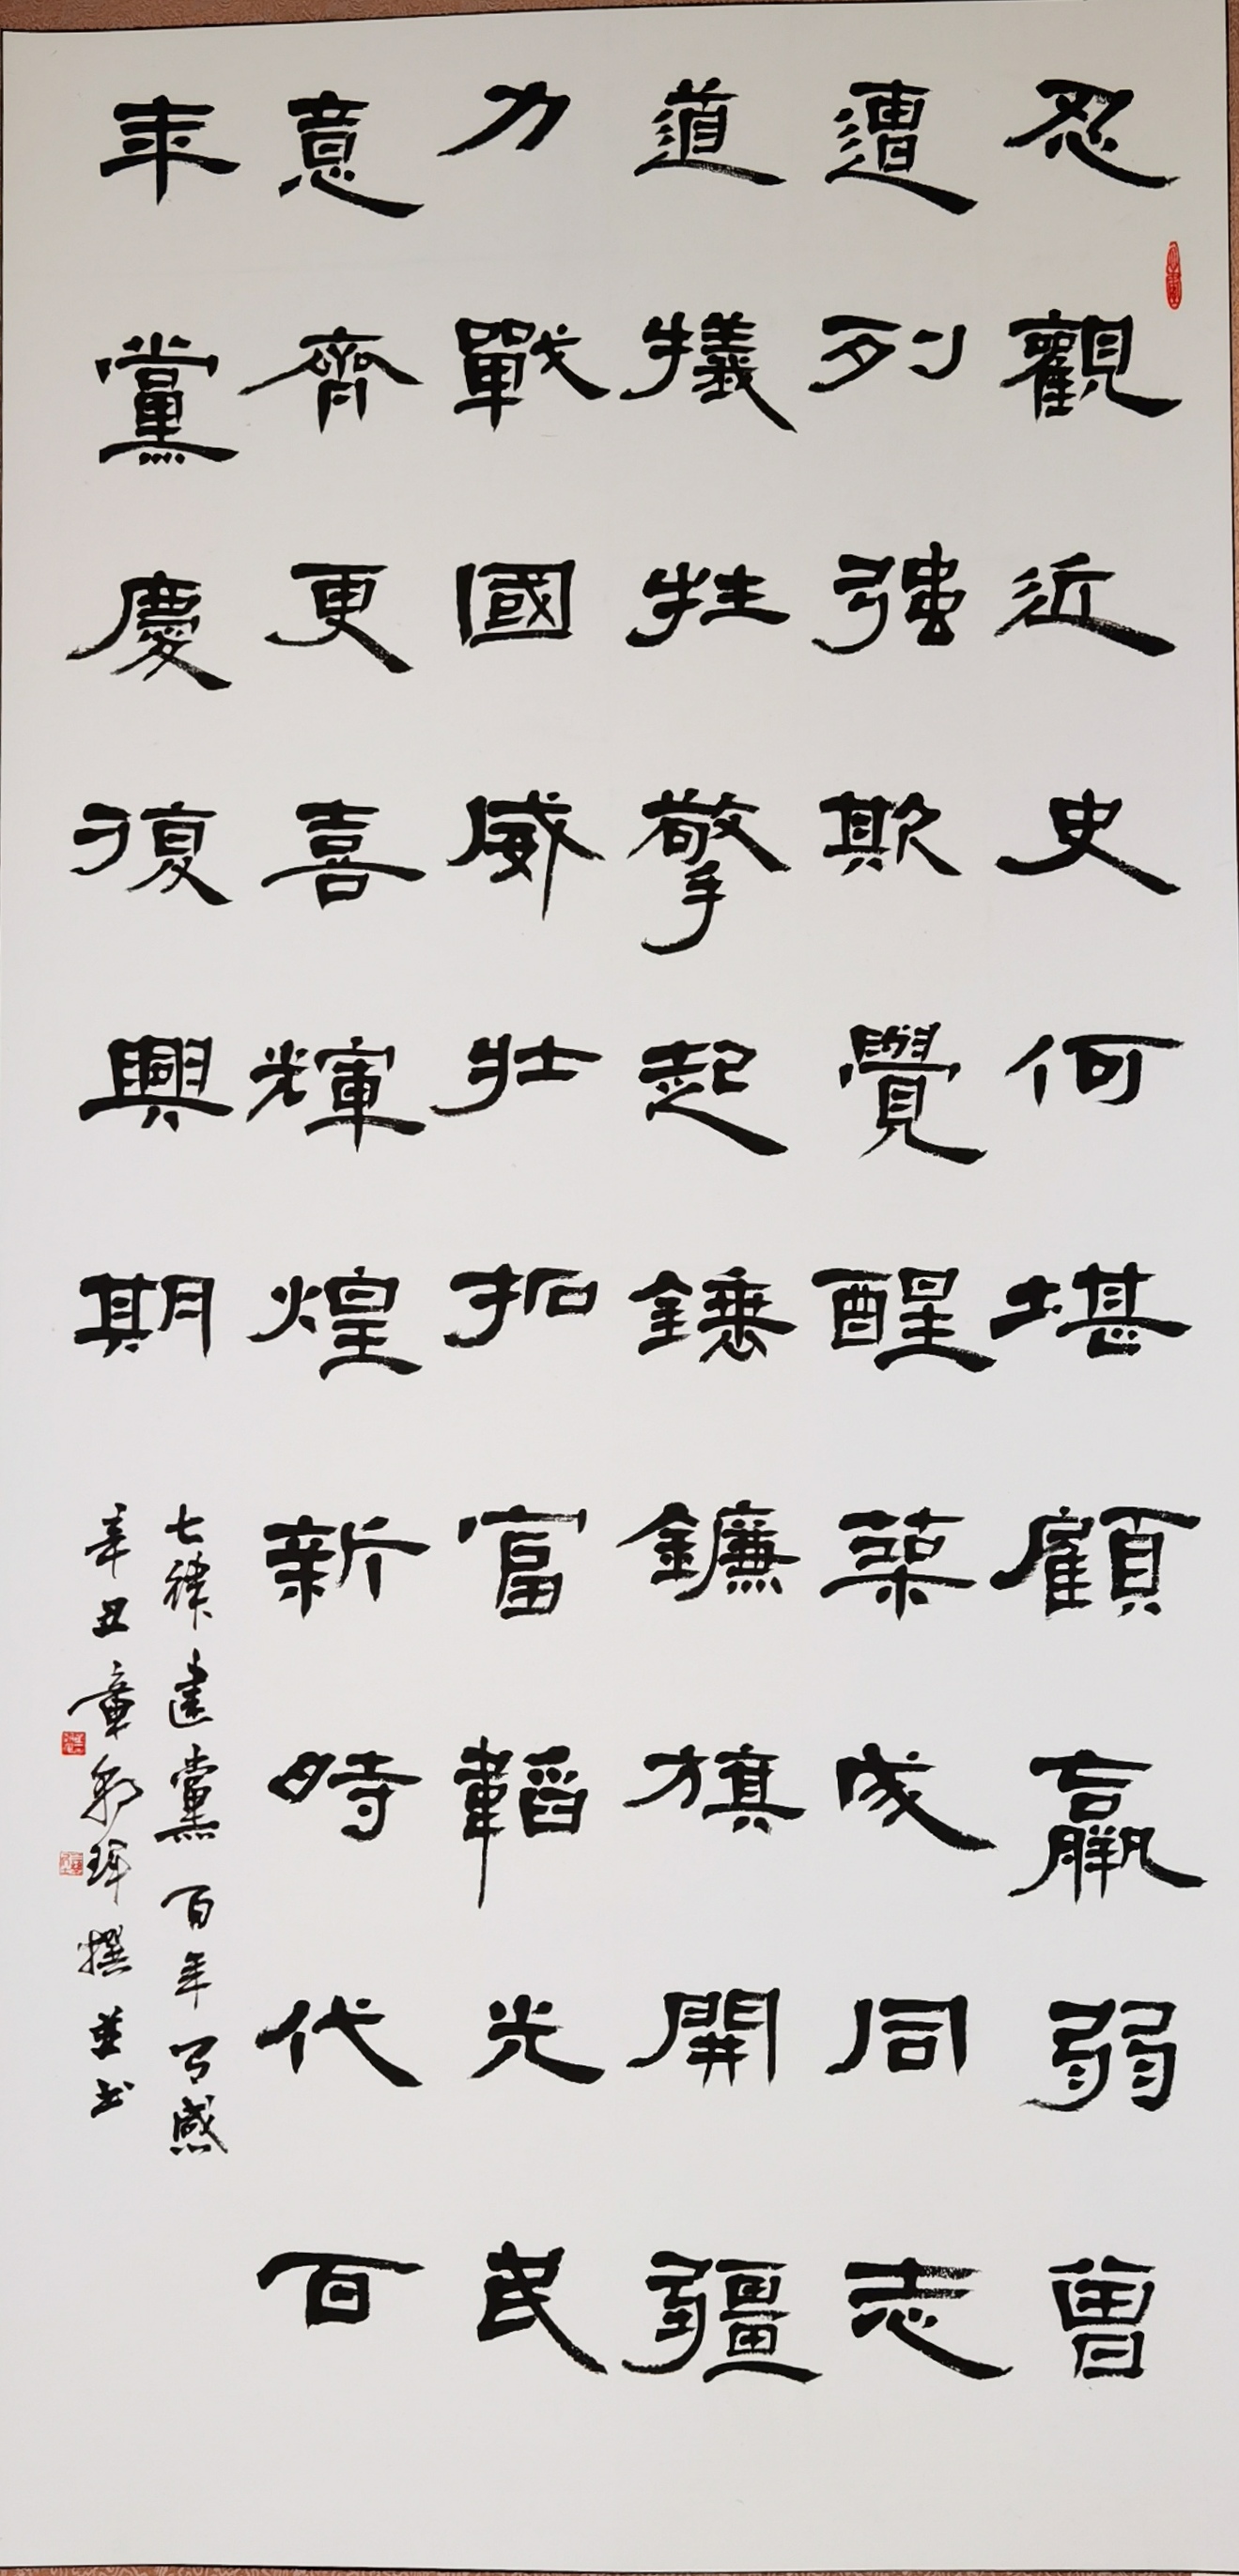 忍觀近史何堪顧羸弱曾
遭列强欺覺醒築成同志
道犠牲擎起鎚鐮旗開疆
力戰國威壯拓富韜光民
意齊更喜輝煌新時代百
年黨慶復興期
七律建黨百年有感
辛丑章 撰並书